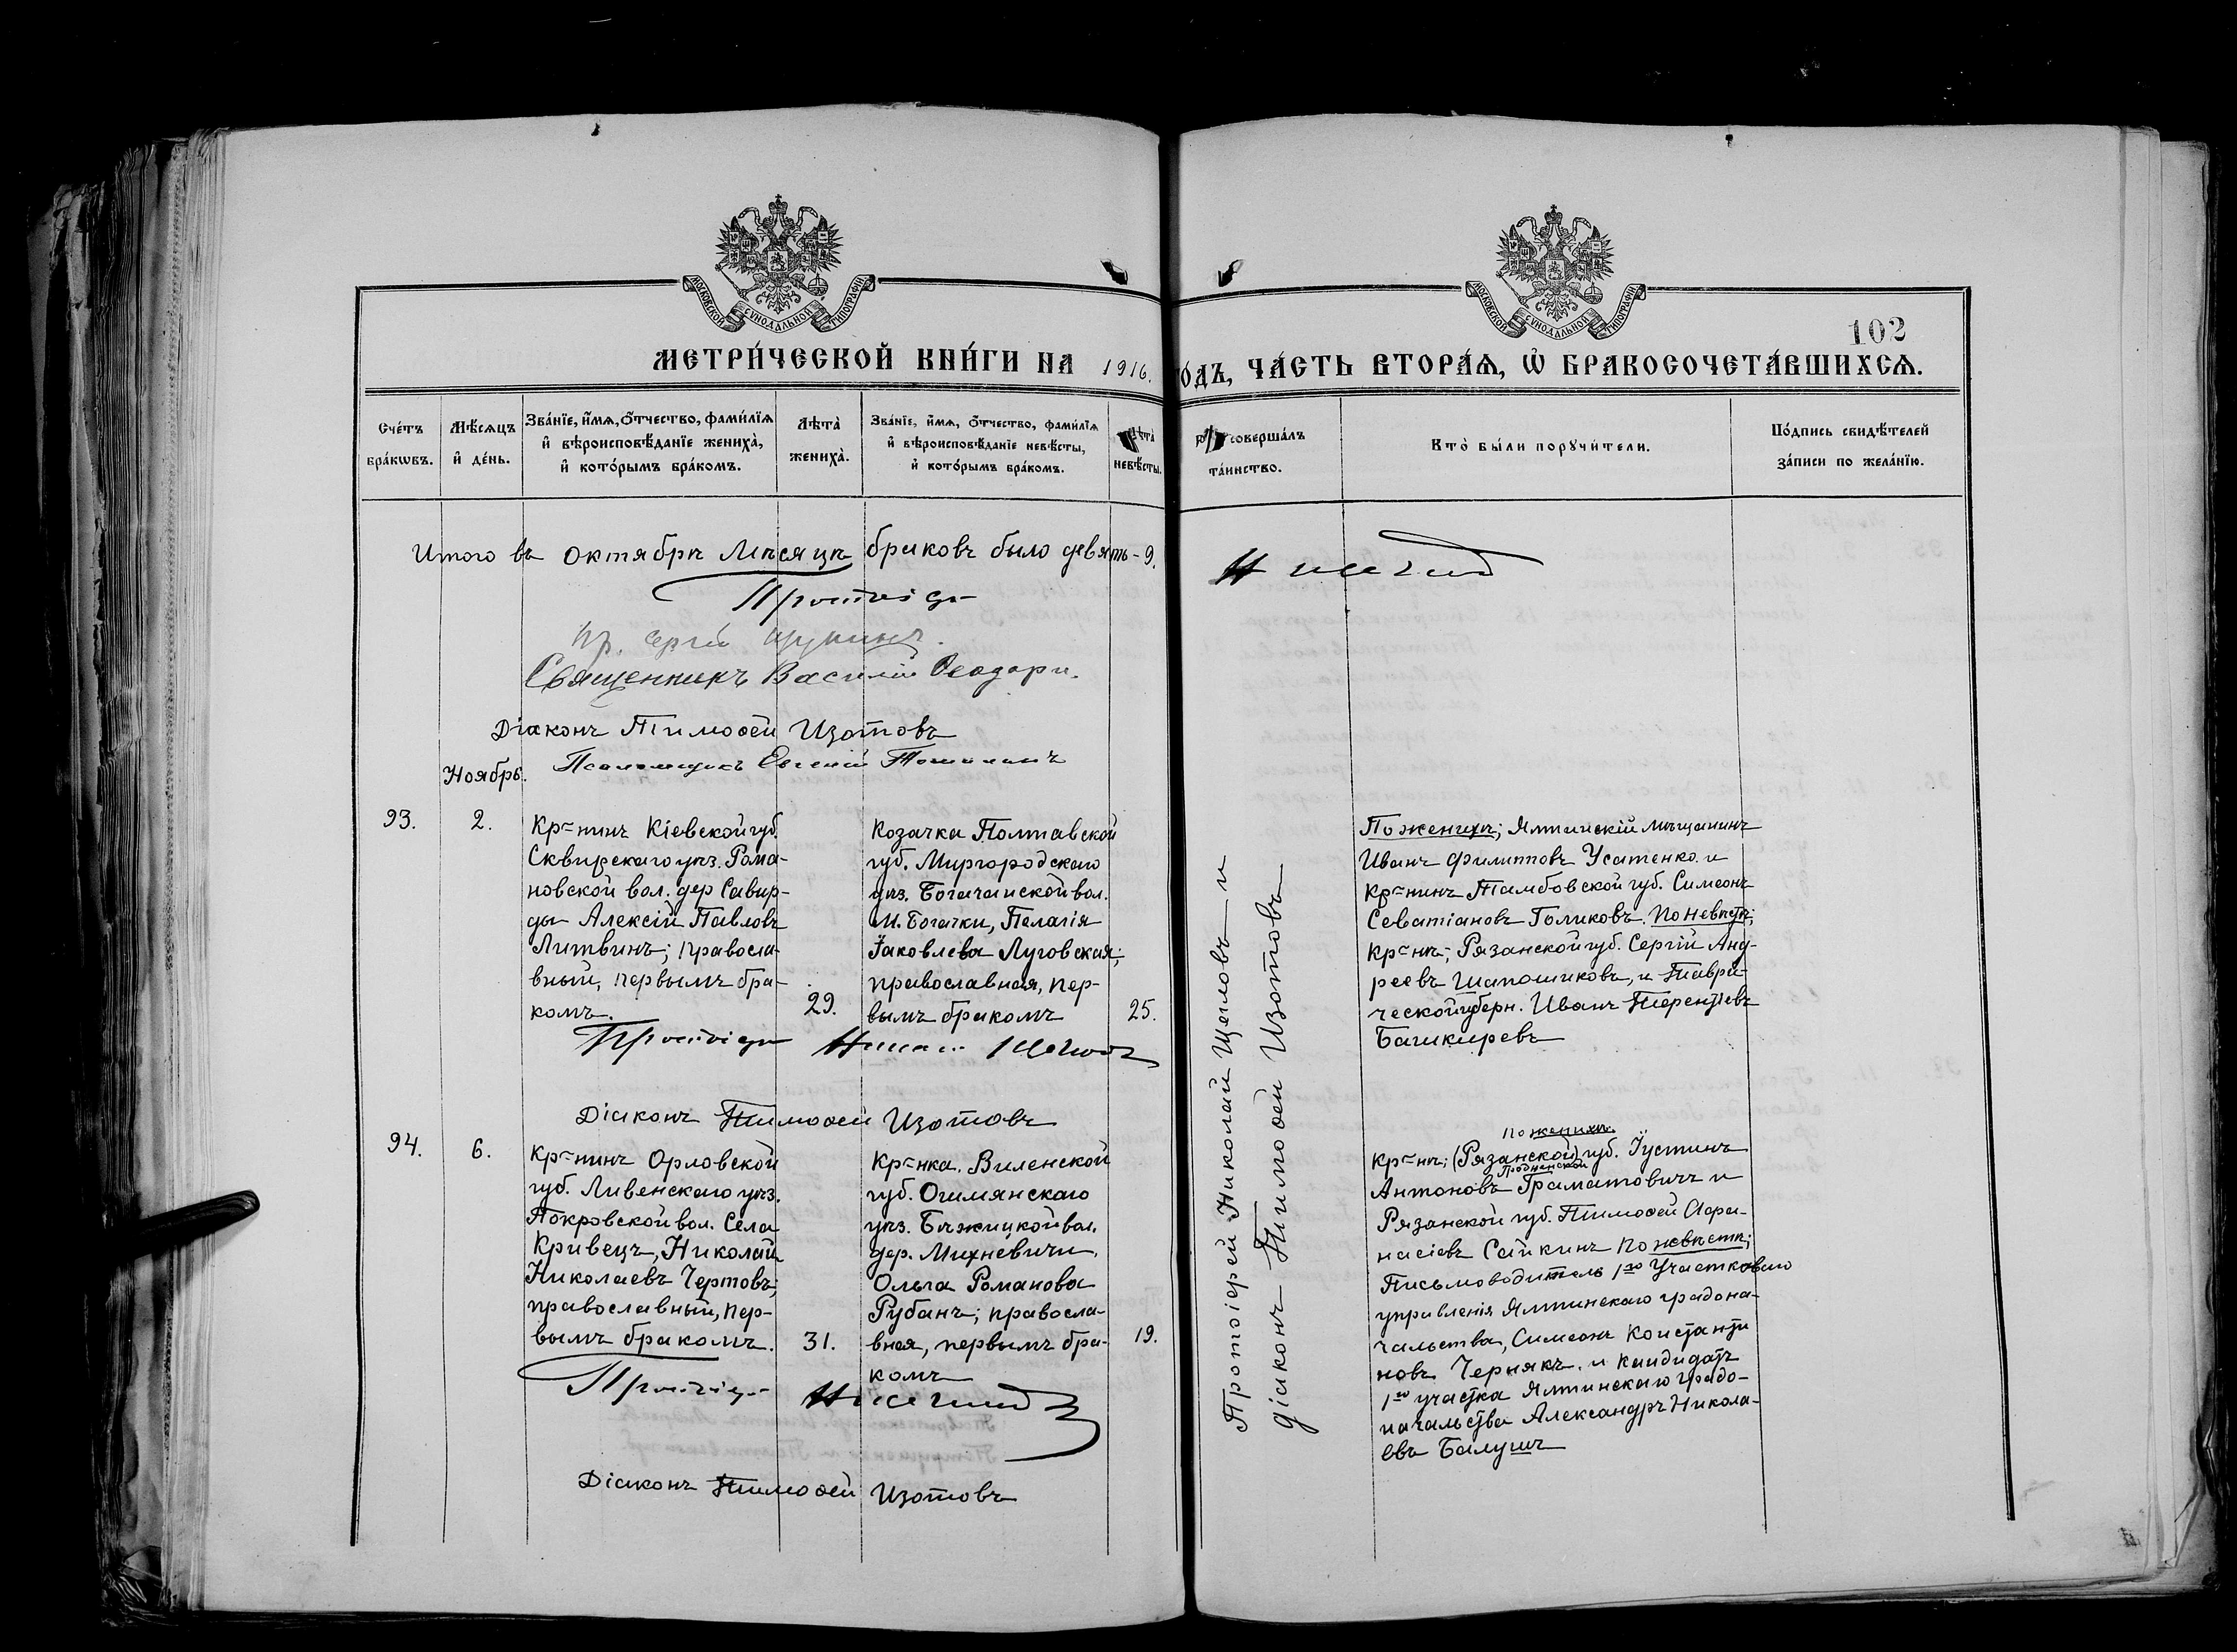 МОСКОВСКОЙ СУНОДАЛЬНОЙ ТИПОГРАФІИ
МОСКОВСКОЙ СУНОДАЛЬНОЙ ТИПОГРАФІИ
102
МЕТРИ́ЧЕСКОЙ КНИ́ГИ НА 1916. ГО́ДЪ, ЧА́СТЬ ВТОРА́Ѧ, Ѡ҆ БРАКОСОЧЕТА́ВШИХСѦ.
Сче́тъ
бра́кѡвъ.
Мѣ́сѧцъ
и҆ де́нь.
Зва́нїе, и҆́мѧ, ѻ҆́тчество, фами́лїѧ
и҆ вѣроисповѣ́данїе жениха̀,
и҆ кото́рымъ бра́комъ.
Лѣта̀
жениха̀.
Зва́нїе, и҆́мѧ, ѻ҆́тчество, фами́лїѧ
и҆ вѣроисповѣ́данїе невѣ́сты,
и҆ кото́рымъ бра́комъ.
Лѣта̀
невѣ́сты.
соверша́лъ
та́инство.
Кто̀ бы́ли порꙋчи́тели.
По́дпись свидѣ́телей
за́писи по жела́нїю.
Итого въ октябрѣ мѣсяцѣ браковъ было девять - 9.
Протоіер
Н Щеглов
Пр. Сергій Щукинъ.
Священникъ Василій
Діаконъ Тимоѳей Изотовъ
Псаломщикъ Евгеній
Ноябрь.
93.
2.
Кр=нинъ Кіевской губ.
Сквирскаго уѣз. Рома-
новской вол. дер Савир-
ды Алексій Павловъ
Литвинъ; правосла-
вный, первымъ бра-
комъ.
29.
Козачка Полтавской
губ. Миргородскаго
уѣз. Богачанской вол.
М. Богачки, Пелагія
Іаковлева Луговская;
православная, пер-
вымъ бракомъ
25.
Протоіерей Николай Щегловъ и
діаконъ Тимоѳей Изотовъ
По женихѣ; Ялтинскій мѣщанинъ
Иванъ Филипповъ Усатенко и
кр=нинъ Тамбовской губ. Симеонъ
Севатіановъ Голиковъ. По невѣстѣ;
кр=нъ; Рязанской губ. Сергій Анд-
реевъ Шапошиковъ, и Таври-
ческой губерн. Иванъ Терентіевъ
Башкиревъ
Протоіер Никол Щеглов
Діаконъ Тимоѳей Изотовъ
94.
6.
Кр=нинъ Орловской
губ. Ливенскаго уѣз.
Покровской вол. Села
Кривецъ, Николай
Николаевъ Чертовъ;
православный, пер-
вымъ бракомъ.
31.
Кр=нка. Виленской
губ. Ошмянскаго
уѣз. Бѣжицкой вол.
дер. Михневичи,
Ольга Романова
Рубанъ; правосла-
вная, первымъ бра-
комъ
19.
по женихѣ.
Кр=нъ; (Рязанской) губ. Іустинъ
Гродненской
Антоновъ Граматовичъ и
Рязанской губ. Тимоѳей Аѳа-
насіевъ Сайкинъ по невѣстѣ;
Письмоводитель 1го Участковаго
управленія Ялтинскаго градона-
чальства, Симеонъ Константи
новъ Чернякъ. и кандидатъ
1го участка Ялтинскаго градо-
начальства Александръ Никола-
евъ Балушъ
Протоіер Н Щеглов
Діаконъ Тимоѳей Изотовъ